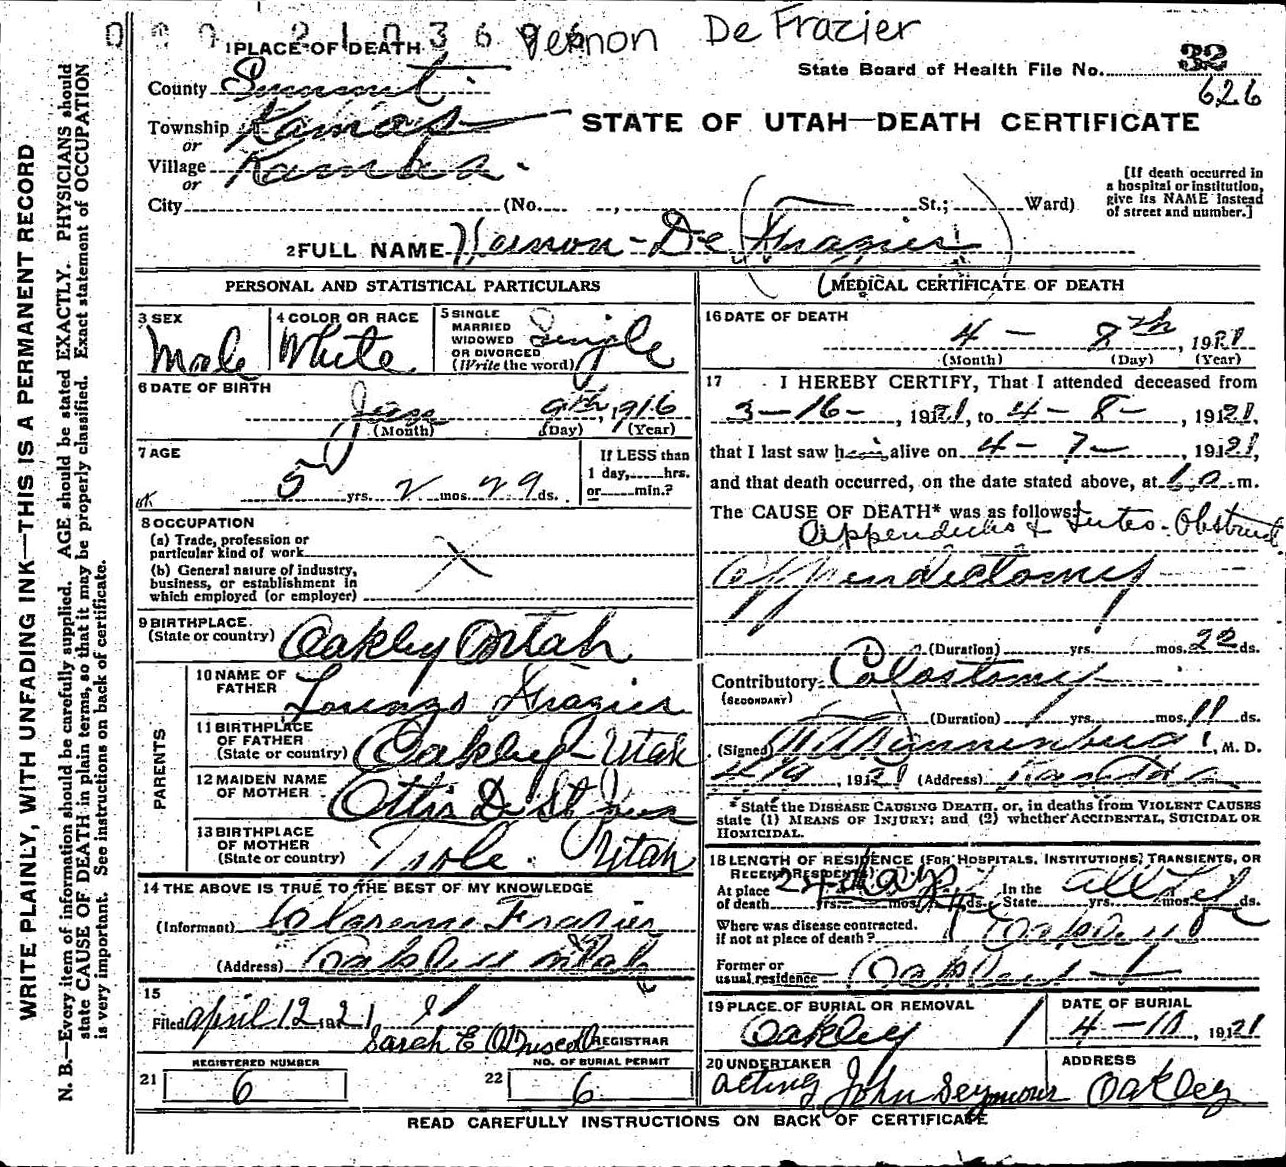 Vernon De Frazier
1 PLACE OF DEATH
State Board of Health File No. 32
626
County Summit
Township Kamas
or
Village Kamas
or
STATE OF UTAH—DEATH CERTIFICATE
City (No. , St.; Ward)
[If death occurred in a hospital or institution, give its NAME instead of street and number.]
2 FULL NAME Vernon De Frazier
PERSONAL AND STATISTICAL PARTICULARS
3 SEX
Male
4 COLOR OR RACE
White
5 SINGLE MARRIED WIDOWED OR DIVORCED (Write the word)
Single
6 DATE OF BIRTH
9th, 1916
(Month) (Day) (Year)
7 AGE
5 yrs. 2 mos. 29 ds.
If LESS than 1 day, hrs. or min.?
8 OCCUPATION
(a) Trade, profession or particular kind of work
(b) General nature of industry, business, or establishment in which employed (or employer)
9 BIRTHPLACE
(State or country) Oakley Utah
PARENTS
10 NAME OF FATHER Lorenzo Frazier
11 BIRTHPLACE OF FATHER (State or country) Oakley Utah
12 MAIDEN NAME OF MOTHER
13 BIRTHPLACE OF MOTHER (State or country) Utah
14 THE ABOVE IS TRUE TO THE BEST OF MY KNOWLEDGE
(Informant) Clarence Frazier
(Address) Oakley Utah
15
Filed April 12 1921
Sarah E O'Driscoll REGISTRAR
REGISTERED NUMBER
21 6
NO. OF BURIAL PERMIT
22 6
MEDICAL CERTIFICATE OF DEATH
16 DATE OF DEATH
4 — 8th, 1921
(Month) (Day) (Year)
17 I HEREBY CERTIFY, That I attended deceased from
3-16-, 1921, to 4-8-, 1921,
that I last saw him alive on 4-7-, 1921,
and that death occurred, on the date stated above, at 6 a m.
The CAUSE OF DEATH* was as follows:
Appendicitis & Intes. Obstruct.
appendectomy
(Duration) yrs. mos. 22 ds.
Contributory Colostomy
(SECONDARY)
(Duration) yrs. mos. 11 ds.
(Signed) M. D.
1921 (Address)
*State the DISEASE CAUSING DEATH, or, in deaths from VIOLENT CAUSES state (1) MEANS OF INJURY; and (2) whether ACCIDENTAL, SUICIDAL OR HOMICIDAL.
18 LENGTH OF RESIDENCE (FOR HOSPITALS, INSTITUTIONS, TRANSIENTS, OR RECENT RESIDENTS)
At place of death yrs. mos. ds. In the State yrs. mos. ds. all Life
Where was disease contracted, if not at place of death? Oakley
Former or usual residence Oakley
19 PLACE OF BURIAL OR REMOVAL
Oakley
DATE OF BURIAL
4-10, 1921
20 UNDERTAKER
acting John Seymour
ADDRESS
Oakley
READ CAREFULLY INSTRUCTIONS ON BACK OF CERTIFICATE
WRITE PLAINLY, WITH UNFADING INK—THIS IS A PERMANENT RECORD
N. B.—Every item of information should be carefully supplied. AGE should be stated EXACTLY. PHYSICIANS should
state CAUSE OF DEATH in plain terms, so that it may be properly classified. Exact statement of OCCUPATION
is very important. See instructions on back of certificate.